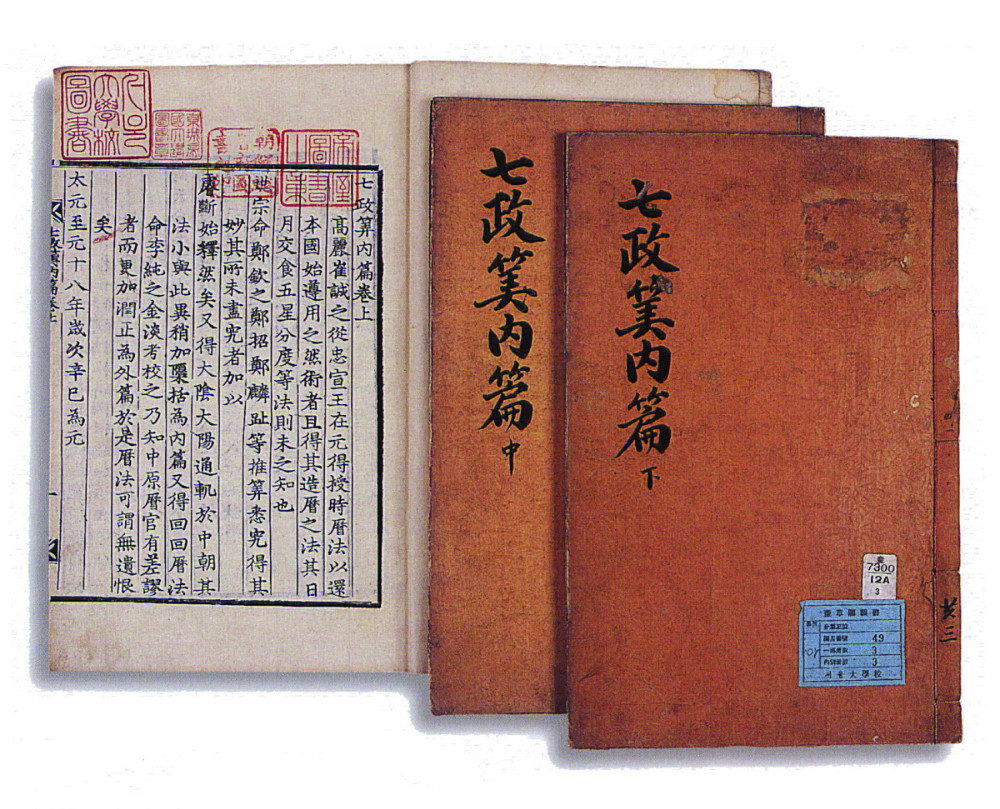 七政算内篇卷上
高麗崔誠之從忠宣王在元得授時曆法以還
本國始遵用之然術者且得其造曆之法其日
月交食五星分度等法則未之知也
世宗命鄭欽之鄭招鄭麟趾等推算悉究得其
妙其所未盡究者加以
睿斷始釋然矣又得大陰大陽通軌於中朝其
法小與此異稍加檃括為内篇又得回回曆法
命李純之金淡考校之乃知中原曆官有差謬
者而更加潤正為外篇於是曆法可謂無遺恨
矣
太元至元十八年歲次辛巳為元
七政筭内篇
中
七政筭内篇
下
7300
12A
3
奎章閣圖書
49
3
3
서울大學校
共三